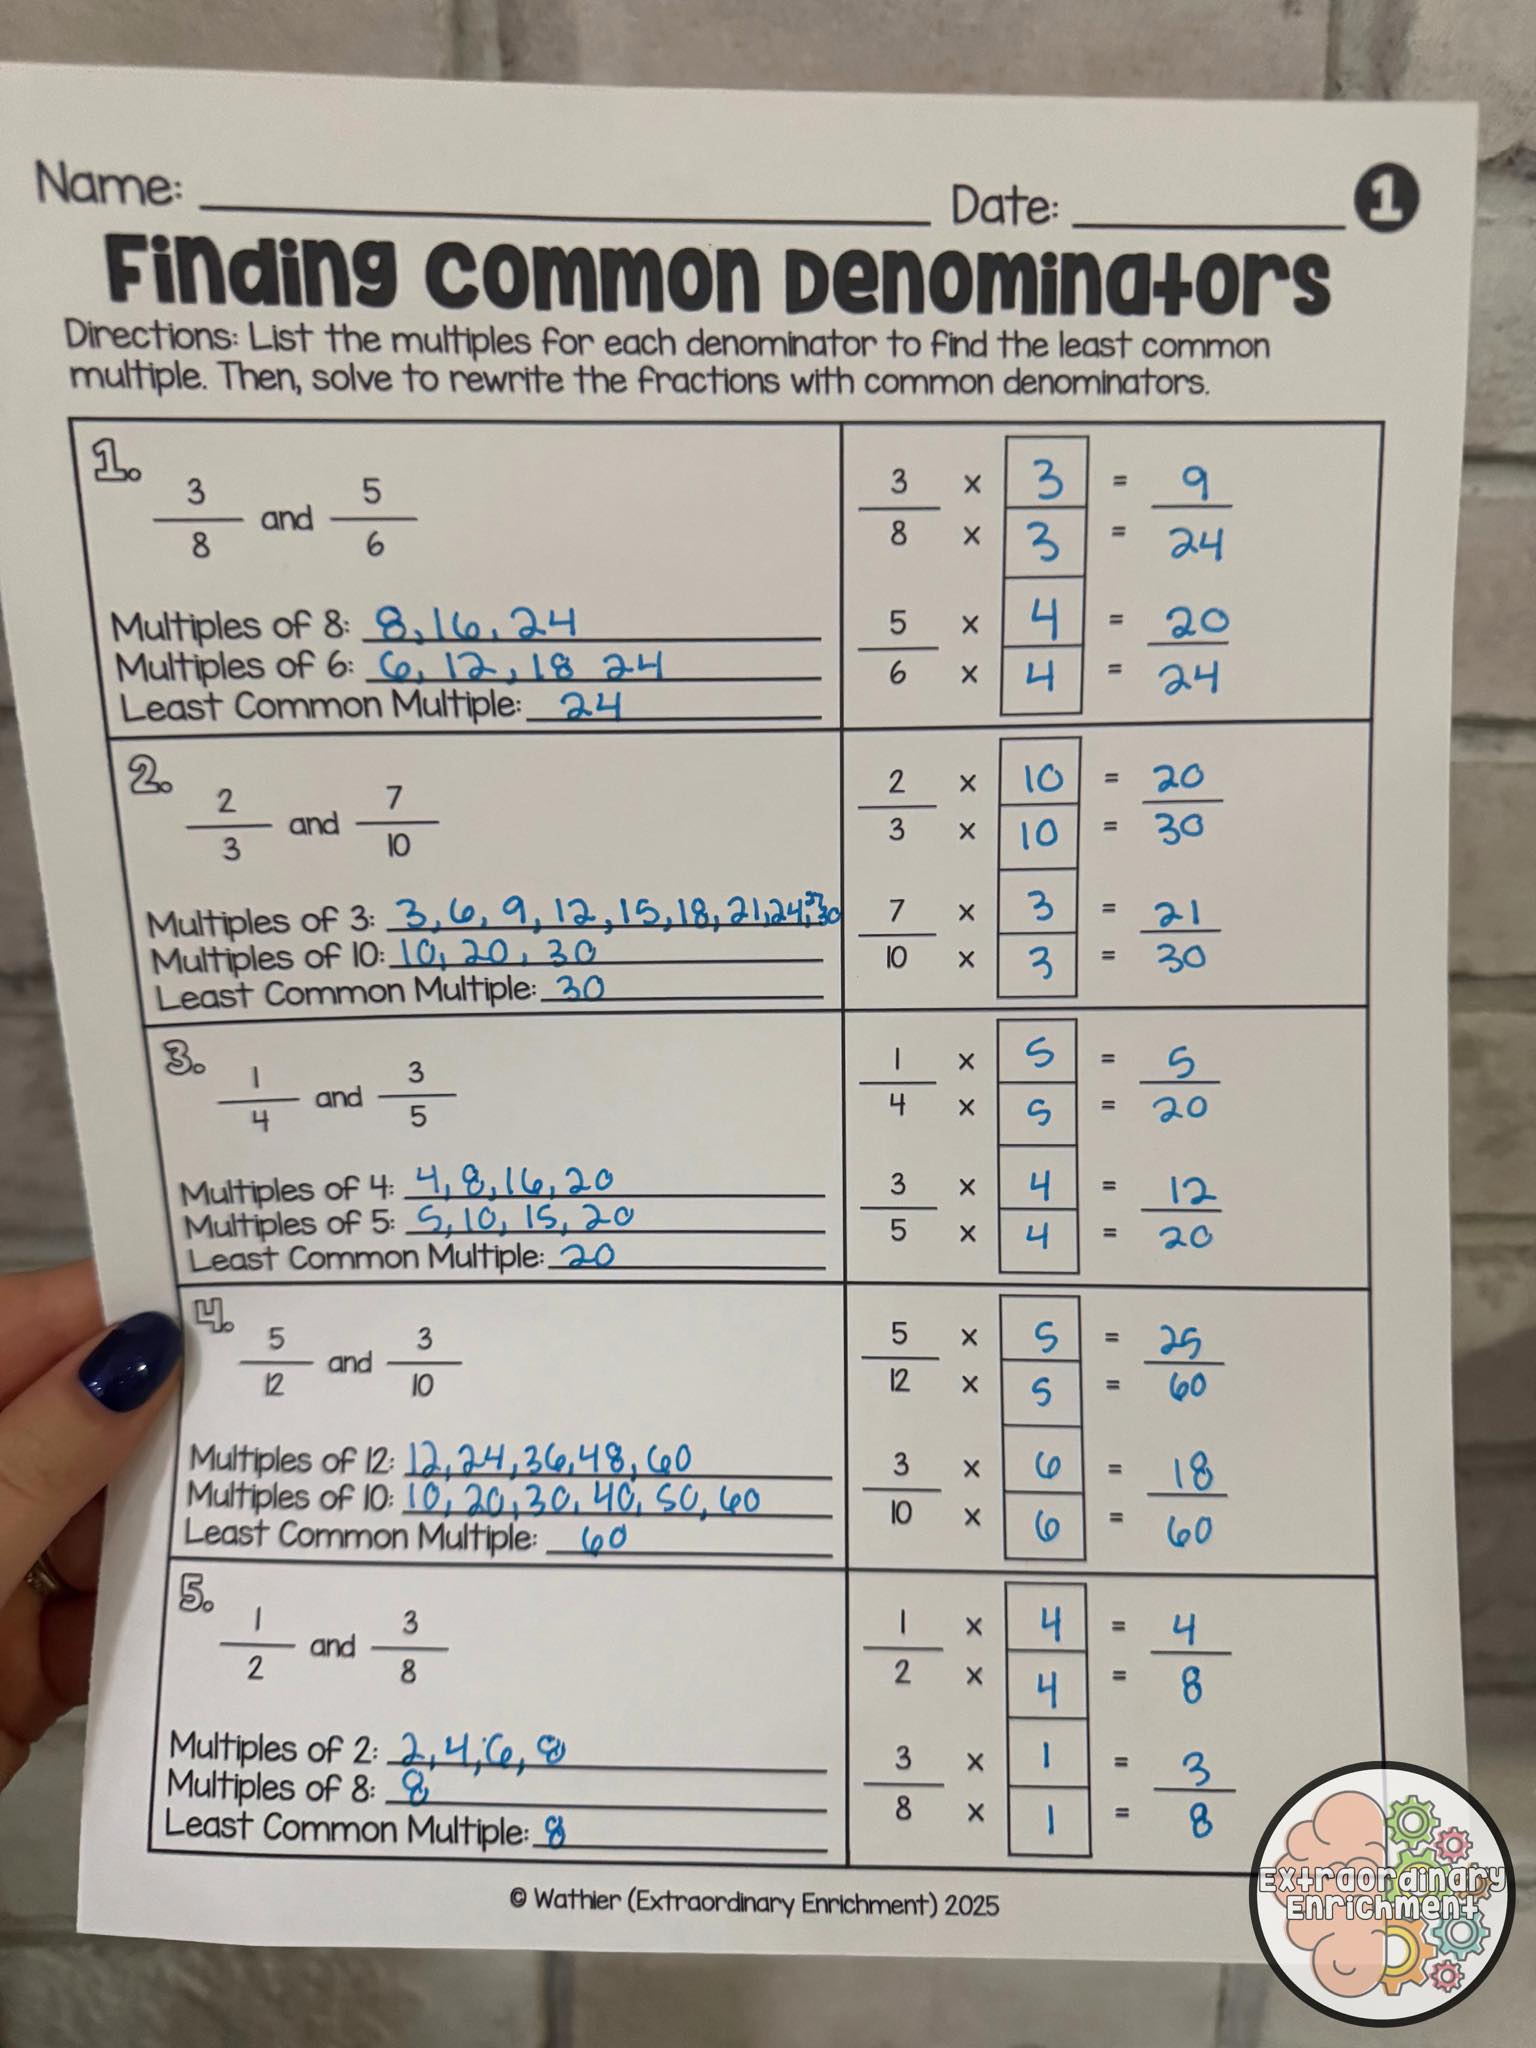 Name: Date: 1
Finding Common Denominators
Directions: List the multiples for each denominator to find the least common
multiple. Then, solve to rewrite the fractions with common denominators.
1.
3/8 and 5/6
Multiples of 8: 8, 16, 24
Multiples of 6: 6, 12, 18 24
Least Common Multiple: 24
3 × 3 = 9
8 × 3 = 24
5 × 4 = 20
6 × 4 = 24
2.
2/3 and 7/10
Multiples of 3: 3, 6, 9, 12, 15, 18, 21, 24, 27, 30
Multiples of 10: 10, 20, 30
Least Common Multiple: 30
2 × 10 = 20
3 × 10 = 30
7 × 3 = 21
10 × 3 = 30
3.
1/4 and 3/5
Multiples of 4: 4, 8, 16, 20
Multiples of 5: 5, 10, 15, 20
Least Common Multiple: 20
1 × 5 = 5
4 × 5 = 20
3 × 4 = 12
5 × 4 = 20
4.
5/12 and 3/10
Multiples of 12: 12, 24, 36, 48, 60
Multiples of 10: 10, 20, 30, 40, 50, 60
Least Common Multiple: 60
5 × 5 = 25
12 × 5 = 60
3 × 6 = 18
10 × 6 = 60
5.
1/2 and 3/8
Multiples of 2: 2, 4, 6, 8
Multiples of 8: 8
Least Common Multiple: 8
1 × 4 = 4
2 × 4 = 8
3 × 1 = 3
8 × 1 = 8
© Wathier (Extraordinary Enrichment) 2025
Extraordinary
Enrichment